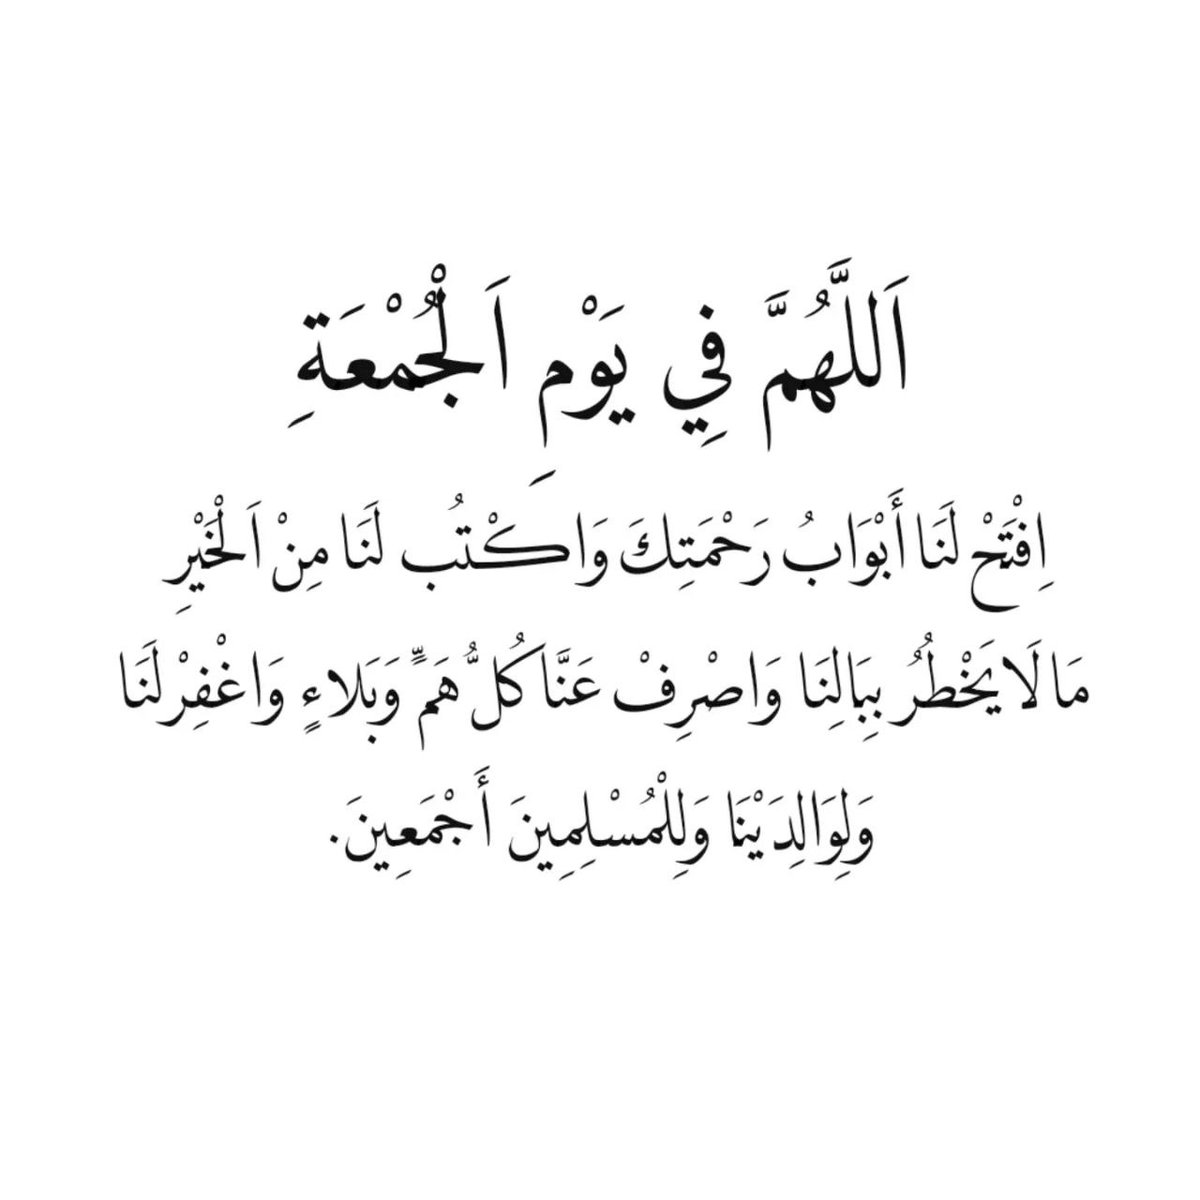 اَللَّهُمَّ فِي يَوْمِ اَلْجُمْعَةِ
اِفْتَحْ لَنَا أَبْوَابُ رَحْمَتِكَ وَاكْتُب لَنَا مِنْ اَلْخَيْرِ
مَا لَا يَخْطُرُ بِبَالِنَا وَاصْرِفْ عَنَّا كُلُّ هَمٍّ وَبَلاءٍ وَاغْفِرْ لَنَا
وَلِوَالِدَيْنَا وَلِلْمُسْلِمِينَ أَجْمَعِينَ.